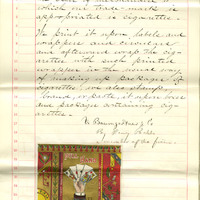 which our trade mark is
appropriated is cigarettes.
We print it upon labels and
wrappers and
and afterward wrap the cig-
arettes with such printed
wrappers in the usual way
of making up packages of
cigarettes; we also stamp,
brand, or paste it upon boxes
and packages containing cig-
arettes.
& Co
By
of the firm